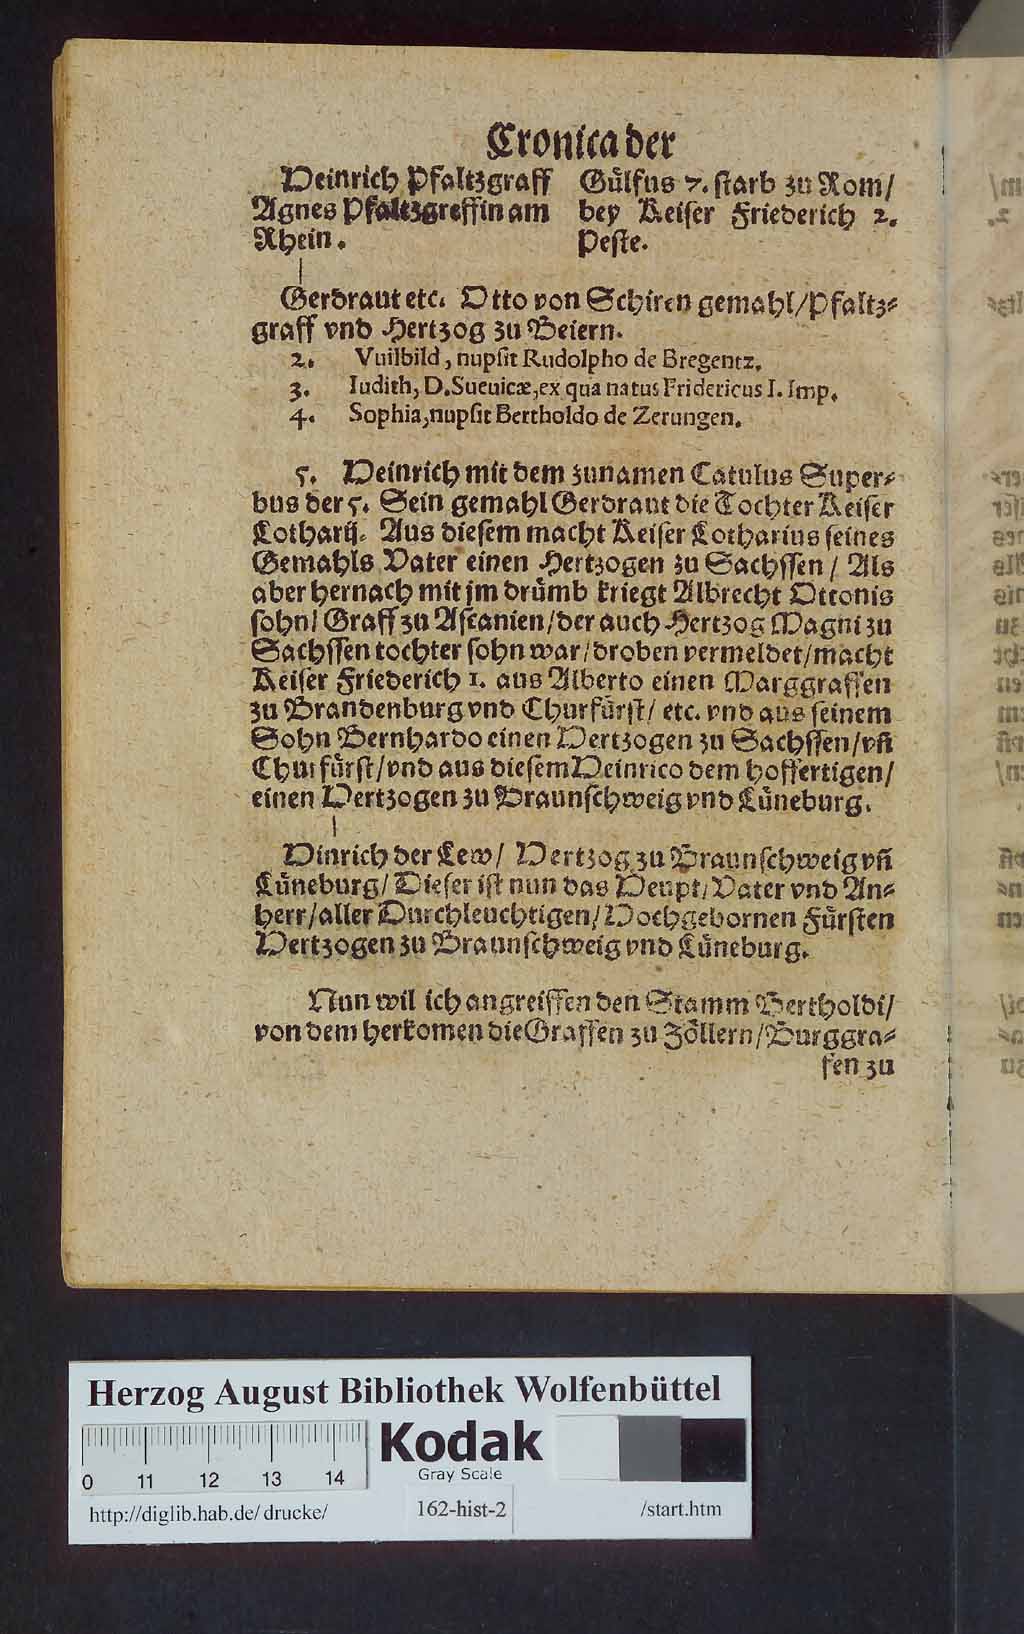 Cronica der
Heinrich Pfaltzgraff
Agnes Pfaltzgreffin am
Rhein.
Gülfus 7. starb zu Rom/
bey Keiser Friederich 2.
Peste.
Gerdraut etc. Otto von Schiren gemahl/Pfaltz⸗
graff vnd Hertzog zu Beiern.
2. Vuilbild, nupſit Rudolpho de Bregentz.
3. Iudith, D. Sueuicæ, ex qua natus Fridericus I. Imp.
4. Sophia, nupſit Bertholdo de Zerungen.
5. Heinrich mit dem zunamen Catulus Super⸗
bus der 5. Sein gemahl Gerdraut die Tochter Keiſer
Lotharij. Aus dieſem macht Keiſer Lotharius ſeines
Gemahls Vater einen Hertzogen zu Sachſſen/ Als
aber hernach mit jm drümb kriegt Albrecht Ottonis
ſohn/ Graff zu Aſcanien/der auch Hertzog Magni zu
Sachſſen tochter ſohn war/droben vermeldet/macht
Keiſer Friederich 1. aus Alberto einen Marggraffen
zu Brandenburg vnd Churfürſt/ etc. vnd aus ſeinem
Sohn Bernhardo einen Hertzogen zu Sachſſen/vñ
Churfürſt/vnd aus dieſem Heinrico dem hoffertigen/
einen Hertzogen zu Braunſchweig vnd Lüneburg.
Hinrich der Lew/ Hertzog zu Braunſchweig vñ
Lüneburg/ Dieſer iſt nun das Heupt/Vater vnd An⸗
herr/aller Durchleuchtigen/Hochgebornen Fürſten
Hertzogen zu Braunſchweig vnd Lüneburg.
Nun wil ich angreiffen den Stamm Bertholdi/
von dem herkomen die Graffen zu Zöllern/Burggra⸗
fen zu
Herzog August Bibliothek Wolfenbüttel
Kodak
Gray Scale
0 11 12 13 14
http://diglib.hab.de/drucke/ 162-hist-2 /start.htm